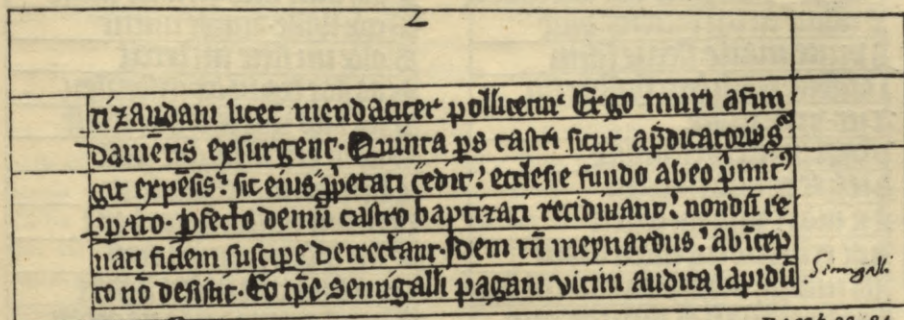 2
tizandam licet mendaciter pollicentur Ergo muri a fun
damētis exsurgent. Quinta ps castri sicut a p̄dicatoris sur
git expēsis: sic eius p̄prietati cedit: ecclesie fundo ab eo prius
cparato. Pfecto demū castro baptizati recidiuant: nondū re
nati fidem suscipe detrectant. Idem tn̄ meynardus: ab īcep
to nō desistit. Eo tp̄e semigalli pagani vicini audita lapidū
Simigalli